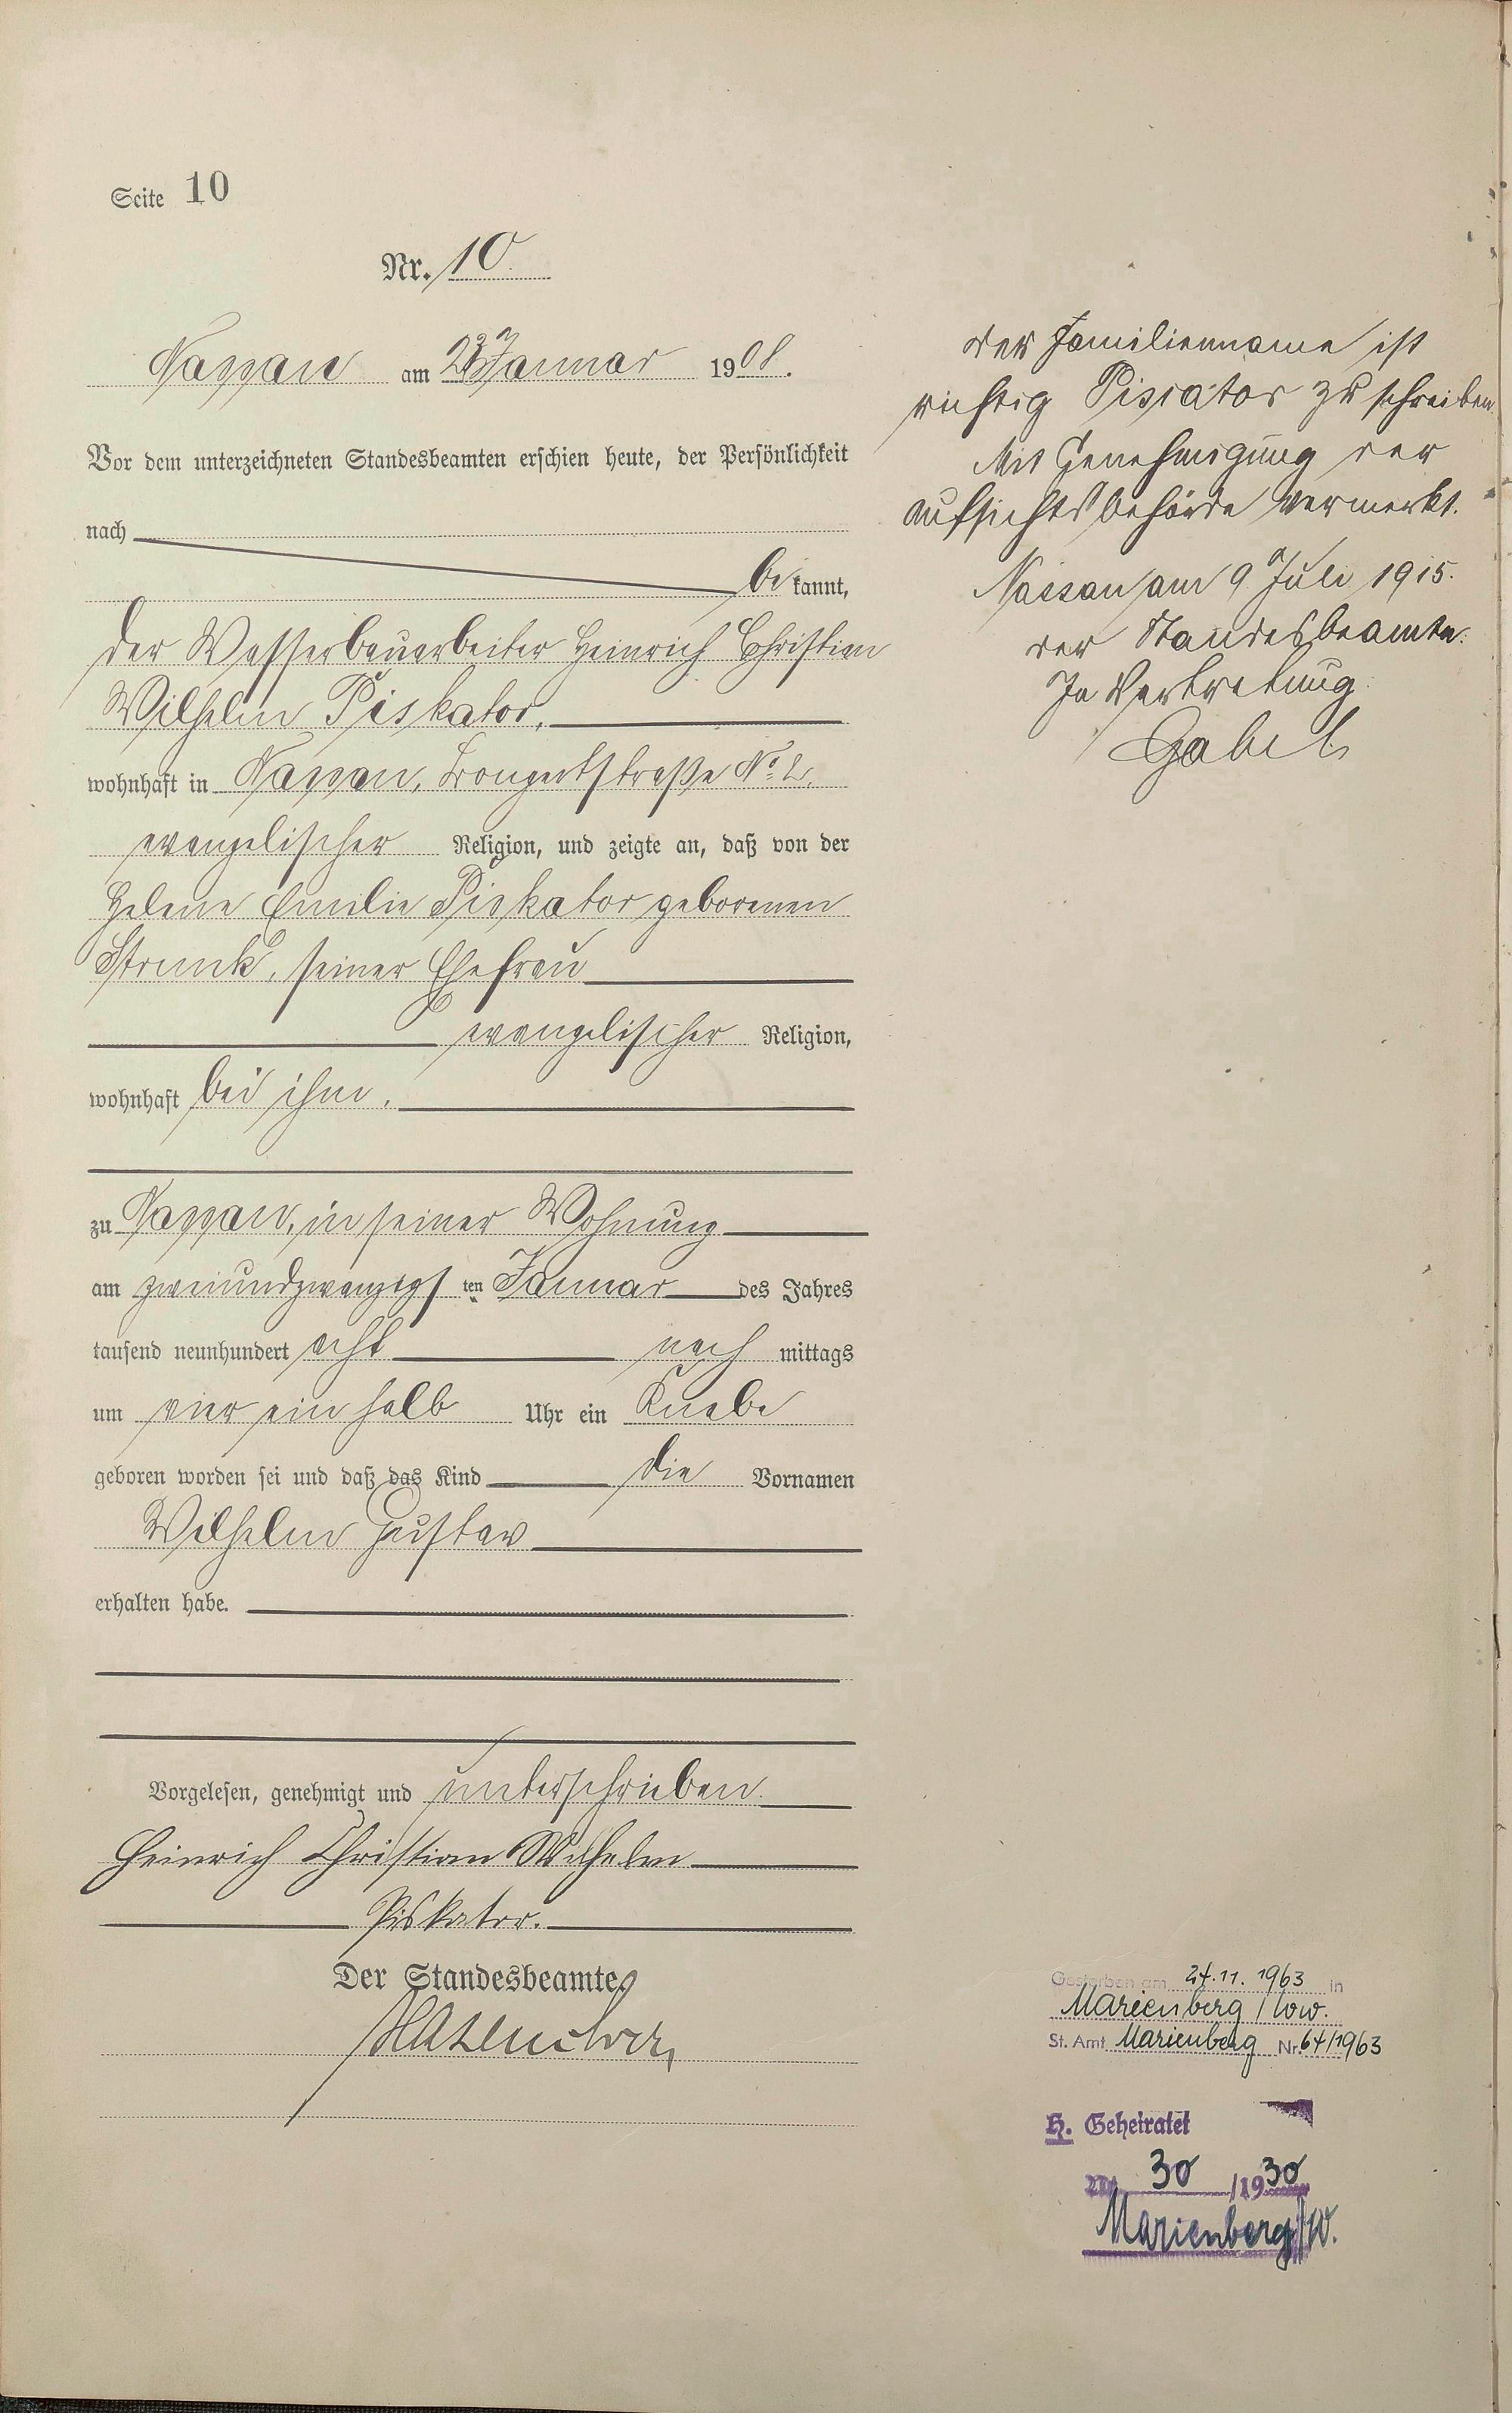 Seite 10
Nr. 10.
Nassau am 23 Januar 1908.
Vor dem unterzeichneten Standesbeamten erschien heute, der Persönlichkeit
nach
bekannt,
der Wasserbauarbeiter Heinrich Christian
Wilhelm Piskator,
wohnhaft in Nassau, Bongertstraße No. 2.
evangelischer Religion, und zeigte an, daß von der
Helene Emilie Piskator geborenen
Strunk, seiner Ehefrau
evangelischer Religion,
wohnhaft bei ihm.
zu Nassau, in seiner Wohnung
am zweiundzwanzigsten Januar des Jahres
tausend neunhundert acht nachmittags
um vier ein halb Uhr ein Knabe
geboren worden sei und daß das Kind die Vornamen
Wilhelm Gustav
erhalten habe.
Vorgelesen, genehmigt und unterschrieben.
Heinrich Christian Wilhelm
Piskator.
Der Standesbeamte
der Familienname ist
richtig Piscator zu schreiben.
Mit Genehmigung der
Aufsichtsbehörde vermerkt.
Nassau am 9. Juli 1915.
der Standesbeamte.
In Vertretung:
Gabel
Gestorben am 24.11.1963 in
Marienberg / ww.
St. Amt Marienberg Nr. 64/1963
H. Geheiratet
Nr. 30 /1930
Marienberg/W.